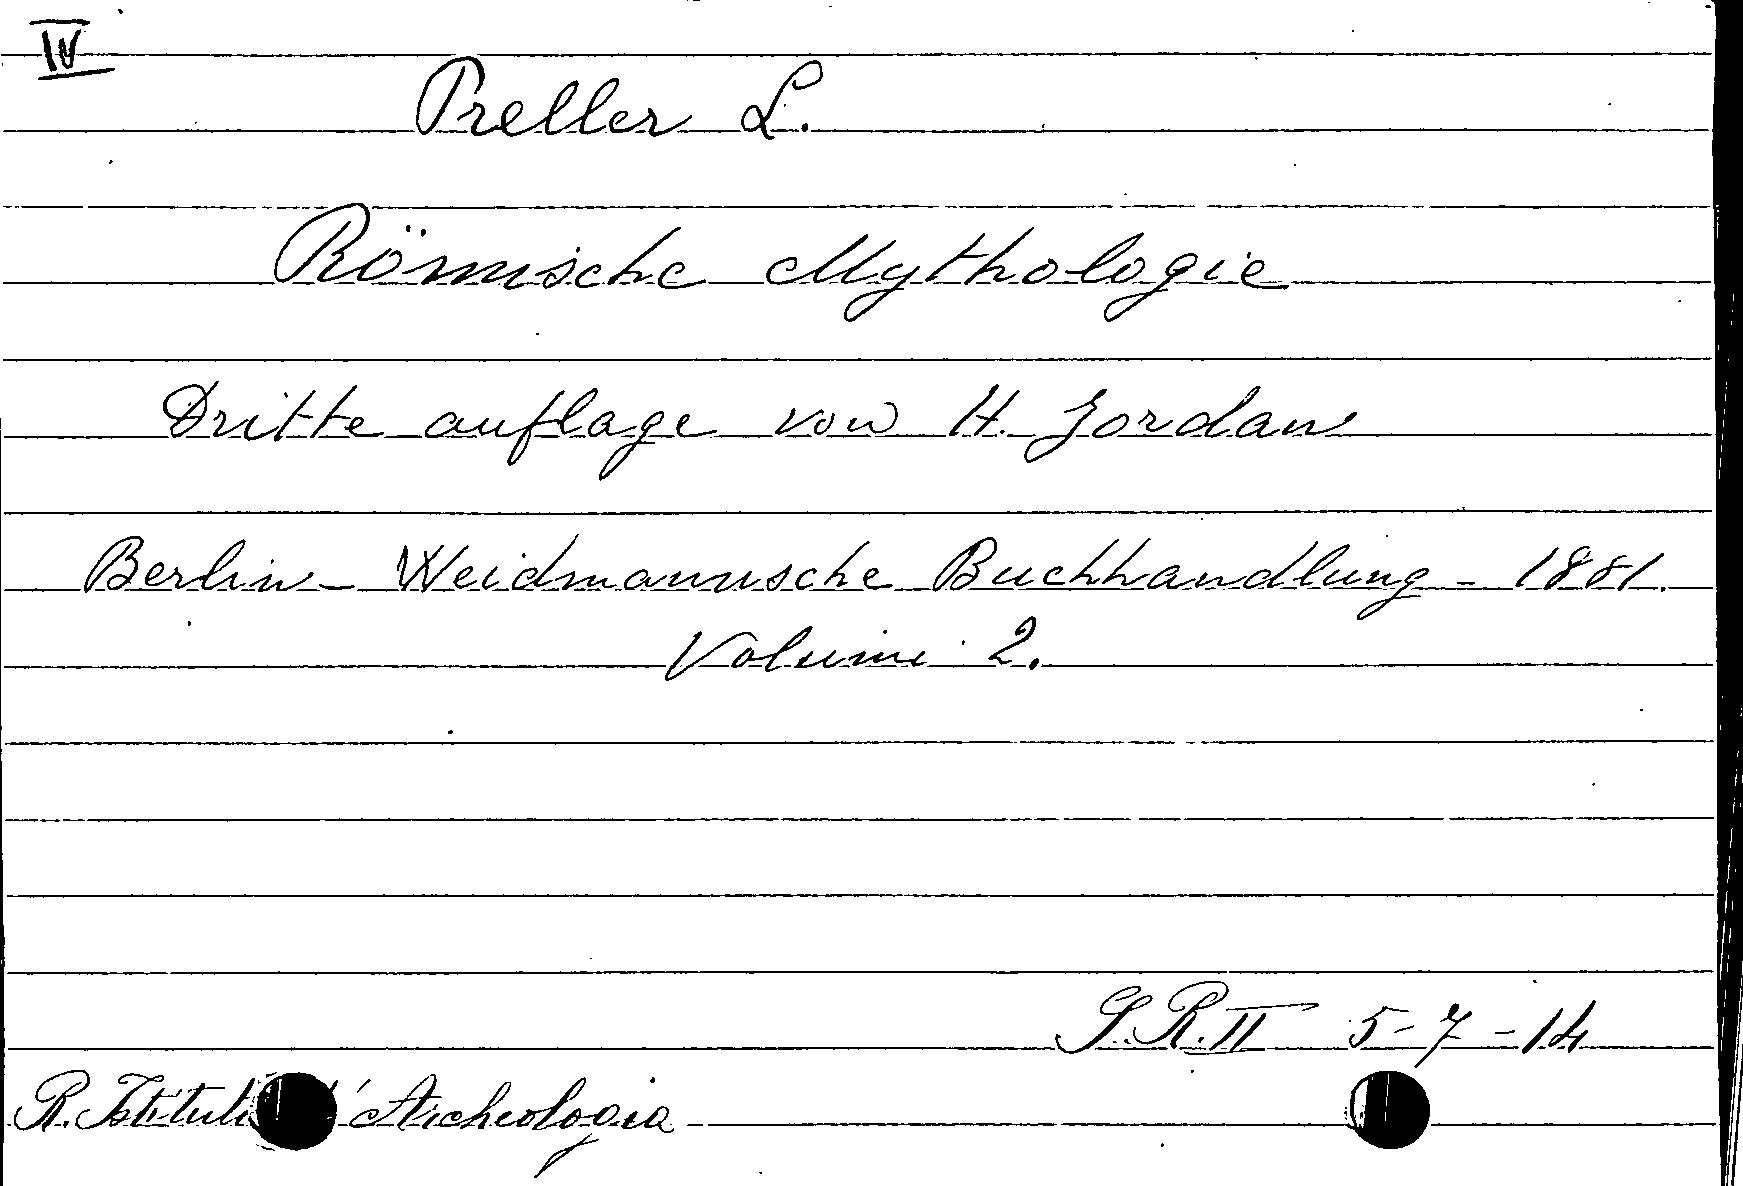 IV
Preller L.
Römische Mythologie
Dritte auflage von H. Jordan
Berlin - Weidmannsche Buchhandlung - 1881.
Volumi 2.
S.R.II 5-7-14
R. Istitut ' Archeologia